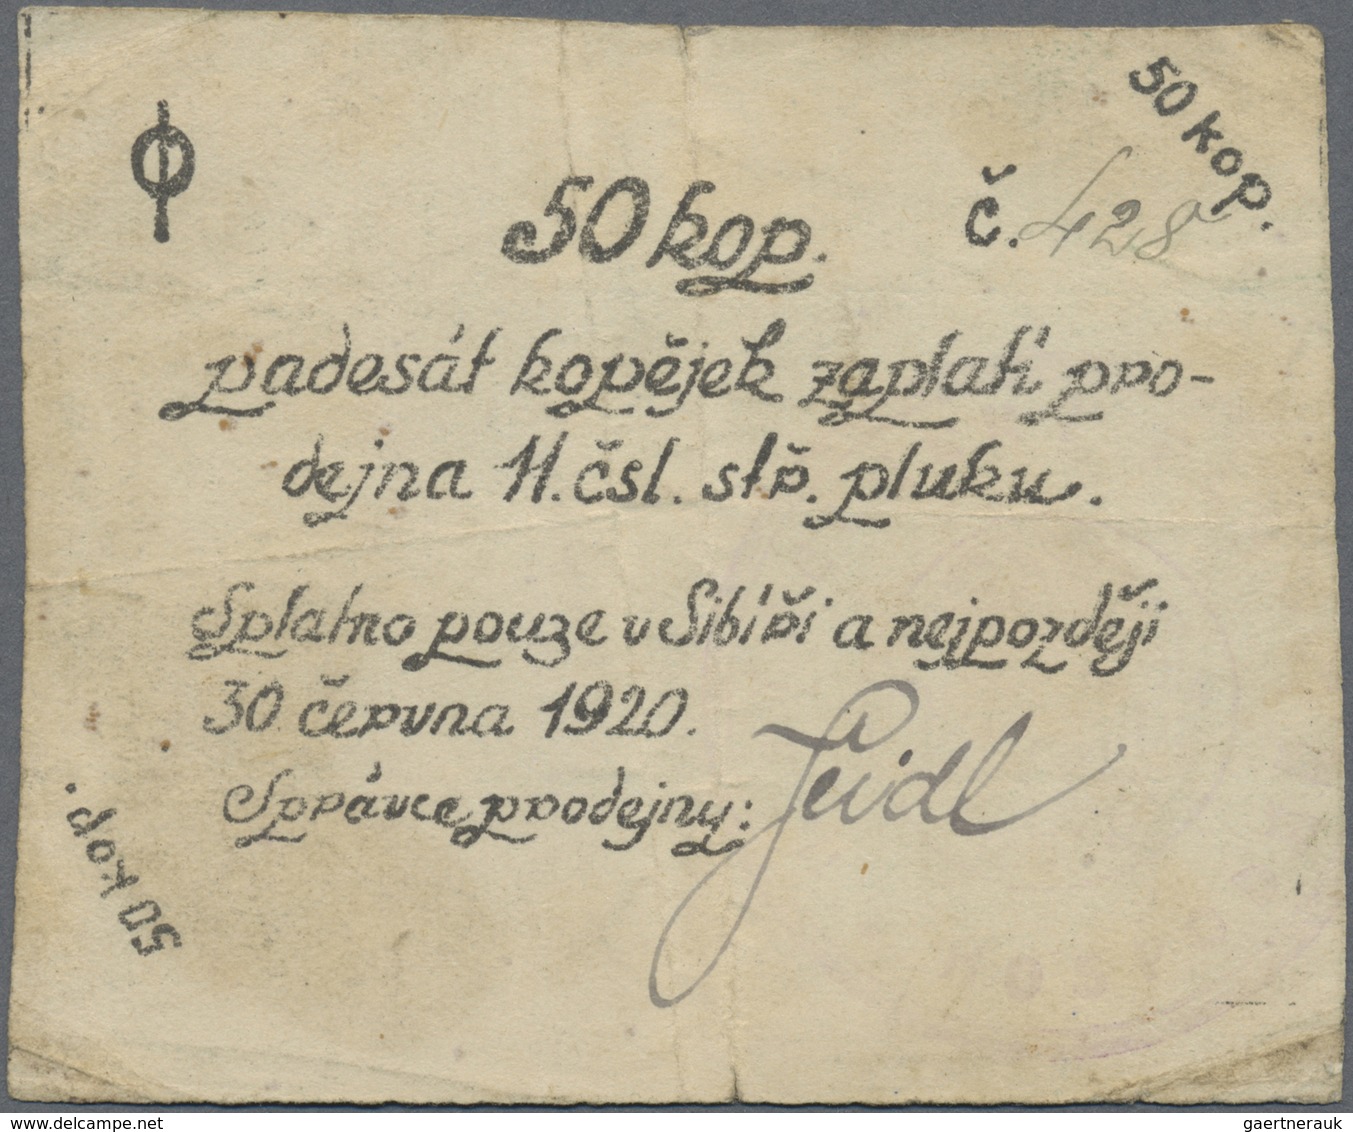 50 kop.
50 kop. č. 428
padesát kopějek zaplatí pro-
dejna 11. čsl. stř. pluku.
Splatno pouze v Sibíři a nejpozději
30 června 1920.
Správce prodejny: Seidl
50 kop.
gaertnerauk